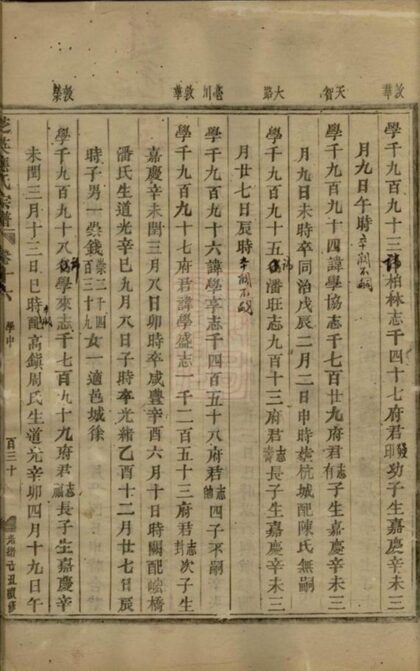 敦華
天智
大路
亳川
敦華
敦榮
學千九百九十三諱柏林志千四十七府君發功子生嘉慶辛未三
月九日午時卒闕不嗣
學千九百九十四諱學協志千七百廿九府君志有子生嘉慶辛未三
月九日未時卒同治戊辰二月二日申時塟杭城配陳氏無嗣
學千九百九十五諱潘旺志九百十三府君志長子生嘉慶辛未三
月廿七日辰時卒闕不嗣
學千九百九十六諱學享志千四百五十八府君志四子不嗣
學千九百九十七府君諱學盛志一千二百五十三府君志封次子生
嘉慶辛未閏三月八日卯時卒咸豐辛酉六月十日時闕配嵫橋
潘氏生道光辛巳九月八日子時卒光緒乙酉十二月廿七日辰
時子男一崇錢崇二千四百三十九女一適邑城徐
學千九百九十八諱學來志千七百九十九府君志長子生嘉慶辛
未閏三月十三日巳時配高鎮周氏生道光辛卯四月十九日午
芝英應氏宗譜
卷十六
學中
百三十
光緒己丑重修